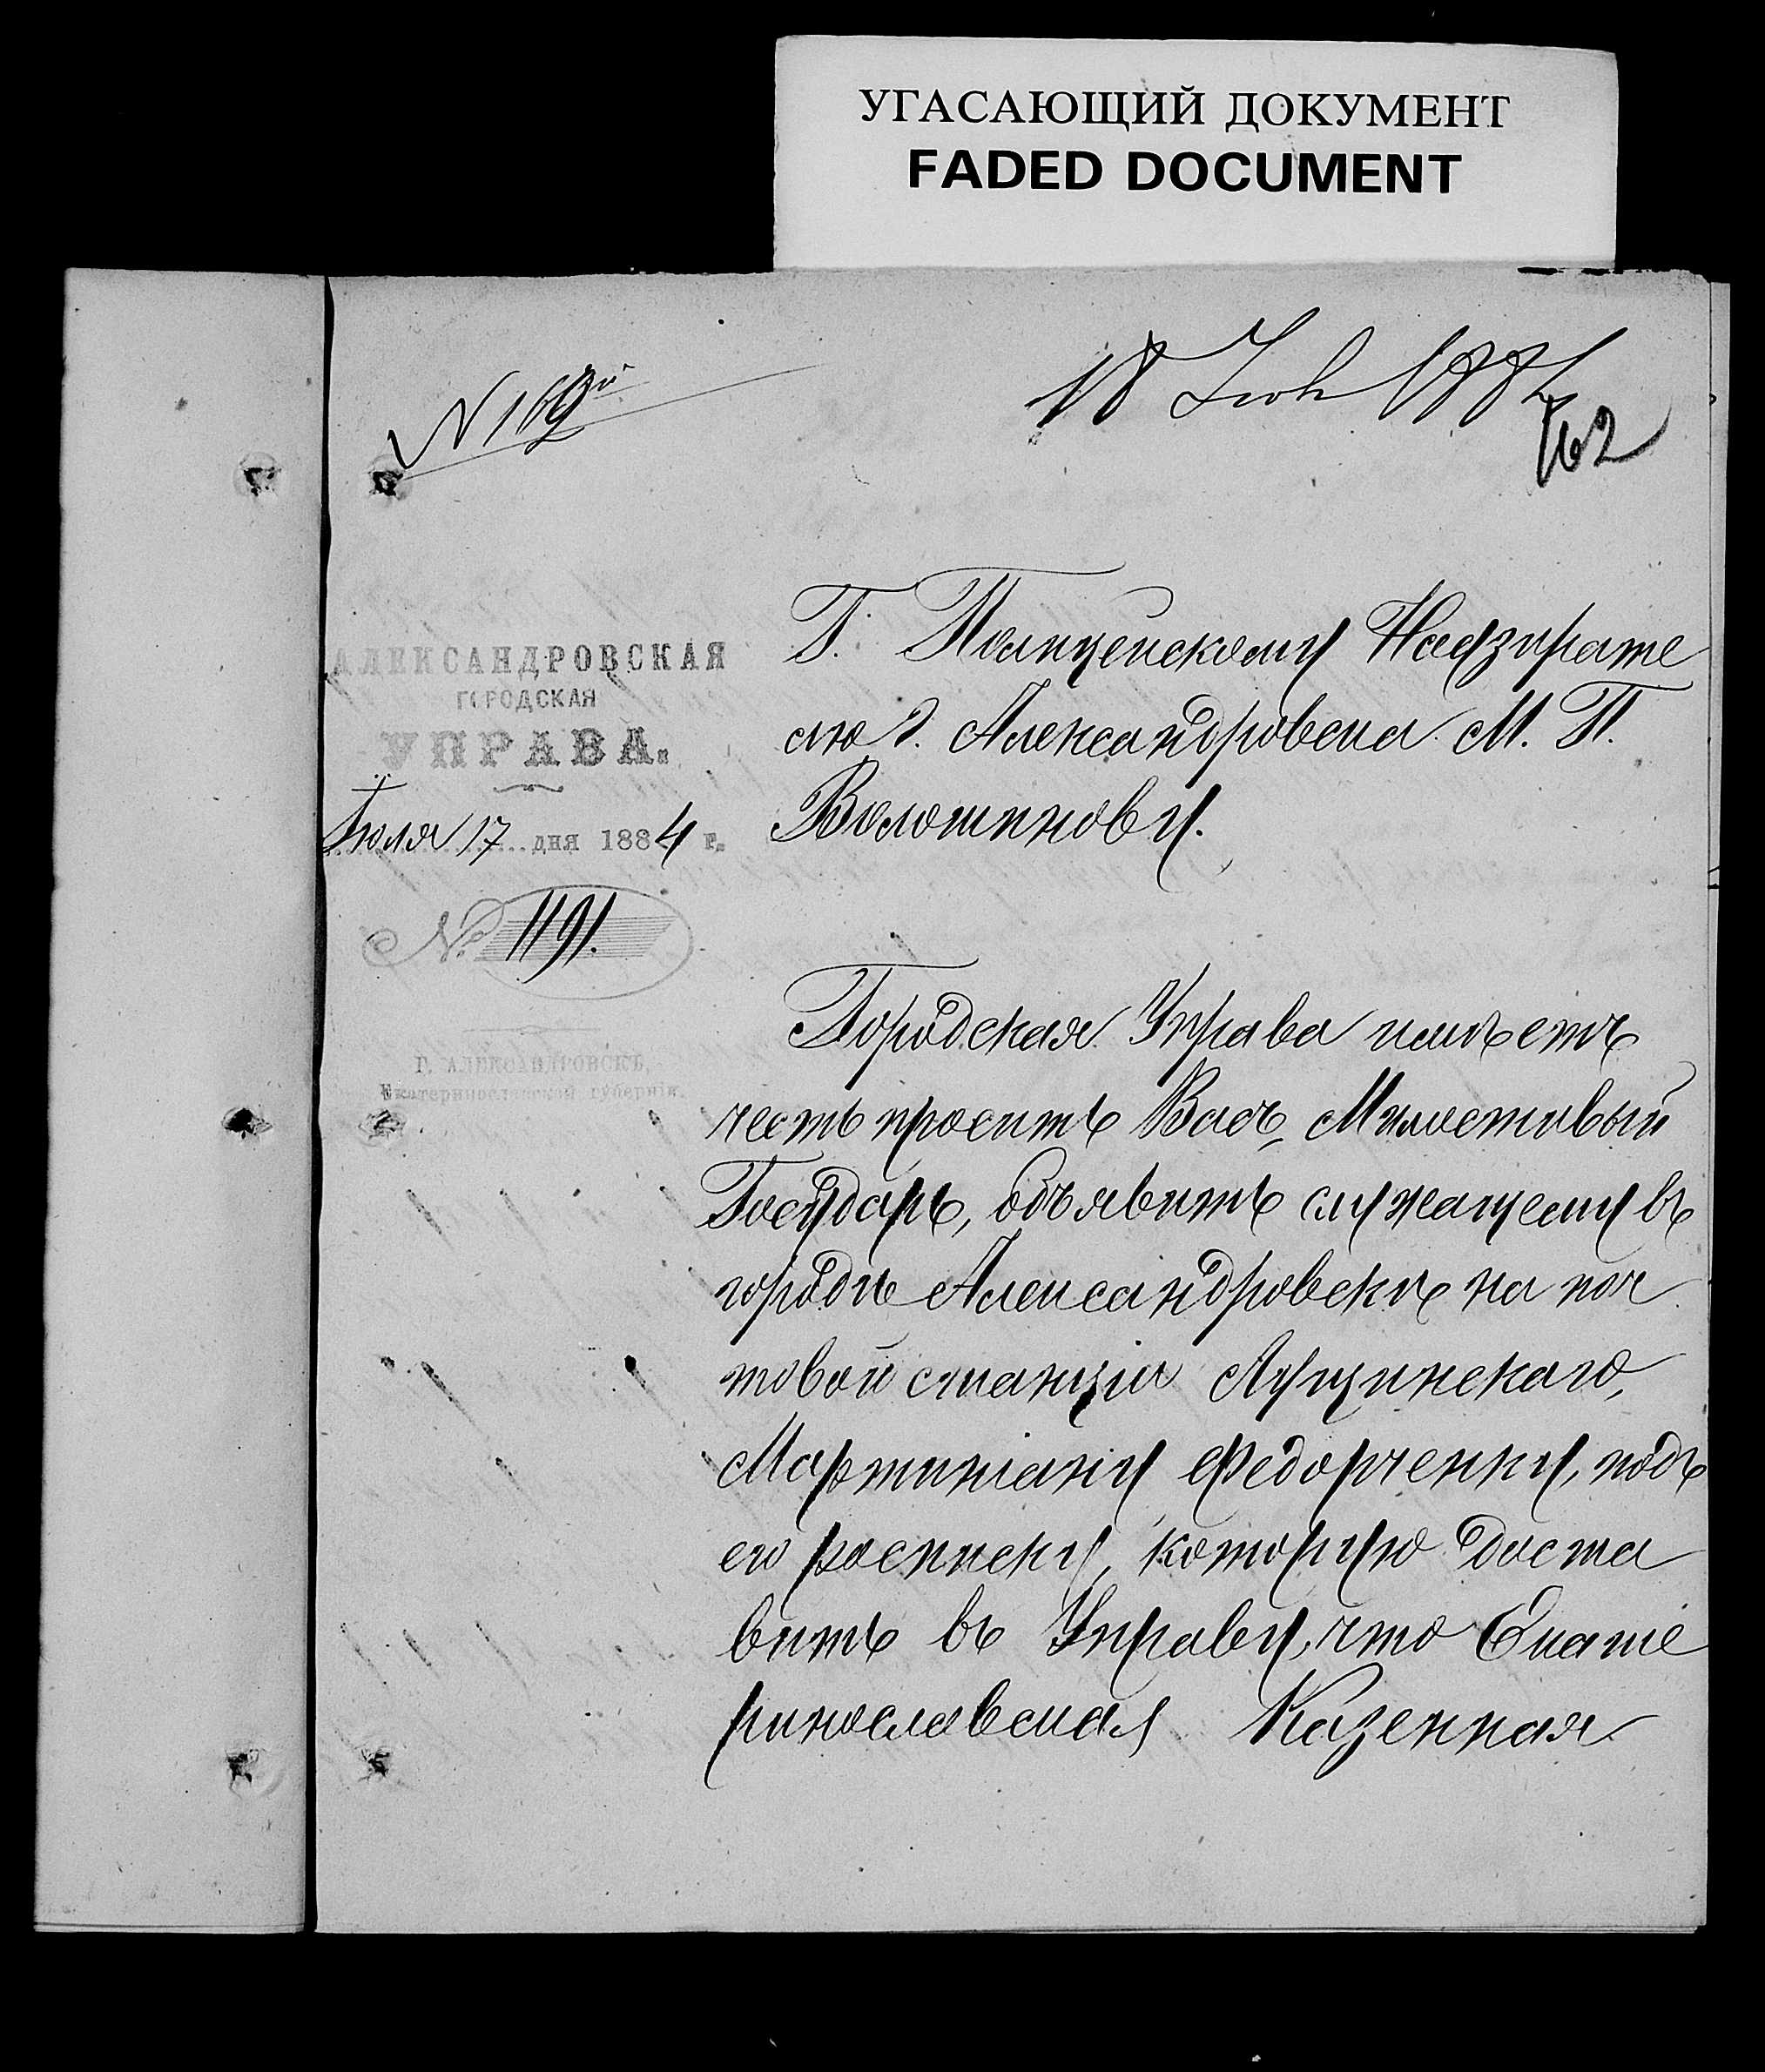 УГАСАЮЩИЙ ДОКУМЕНТ
FADED DOCUMENT
18 Июл 1884
162
АЛЕКСАНДРОВСКАЯ
ГОРОДСКАЯ
УПРАВА.
Іюля 17 дня 1884 г.
№ 1191.
Г. АЛЕКСАНДРОВСКЪ,
Екатеринославской губерніи.
Г. Полицейскому Надзирате
лю г. Александровска М. П.
Волошинову.
Городская Управа имѣетъ
честь просить Васъ, Милостивый
Государь, объявить служащему въ
городѣ Александровскѣ на поч
товой станціи Лущинскаго,
Мартиніану Федорченку, подъ
его росписку, которую доста
вить въ Управу, что Екате
ринославская Казенная